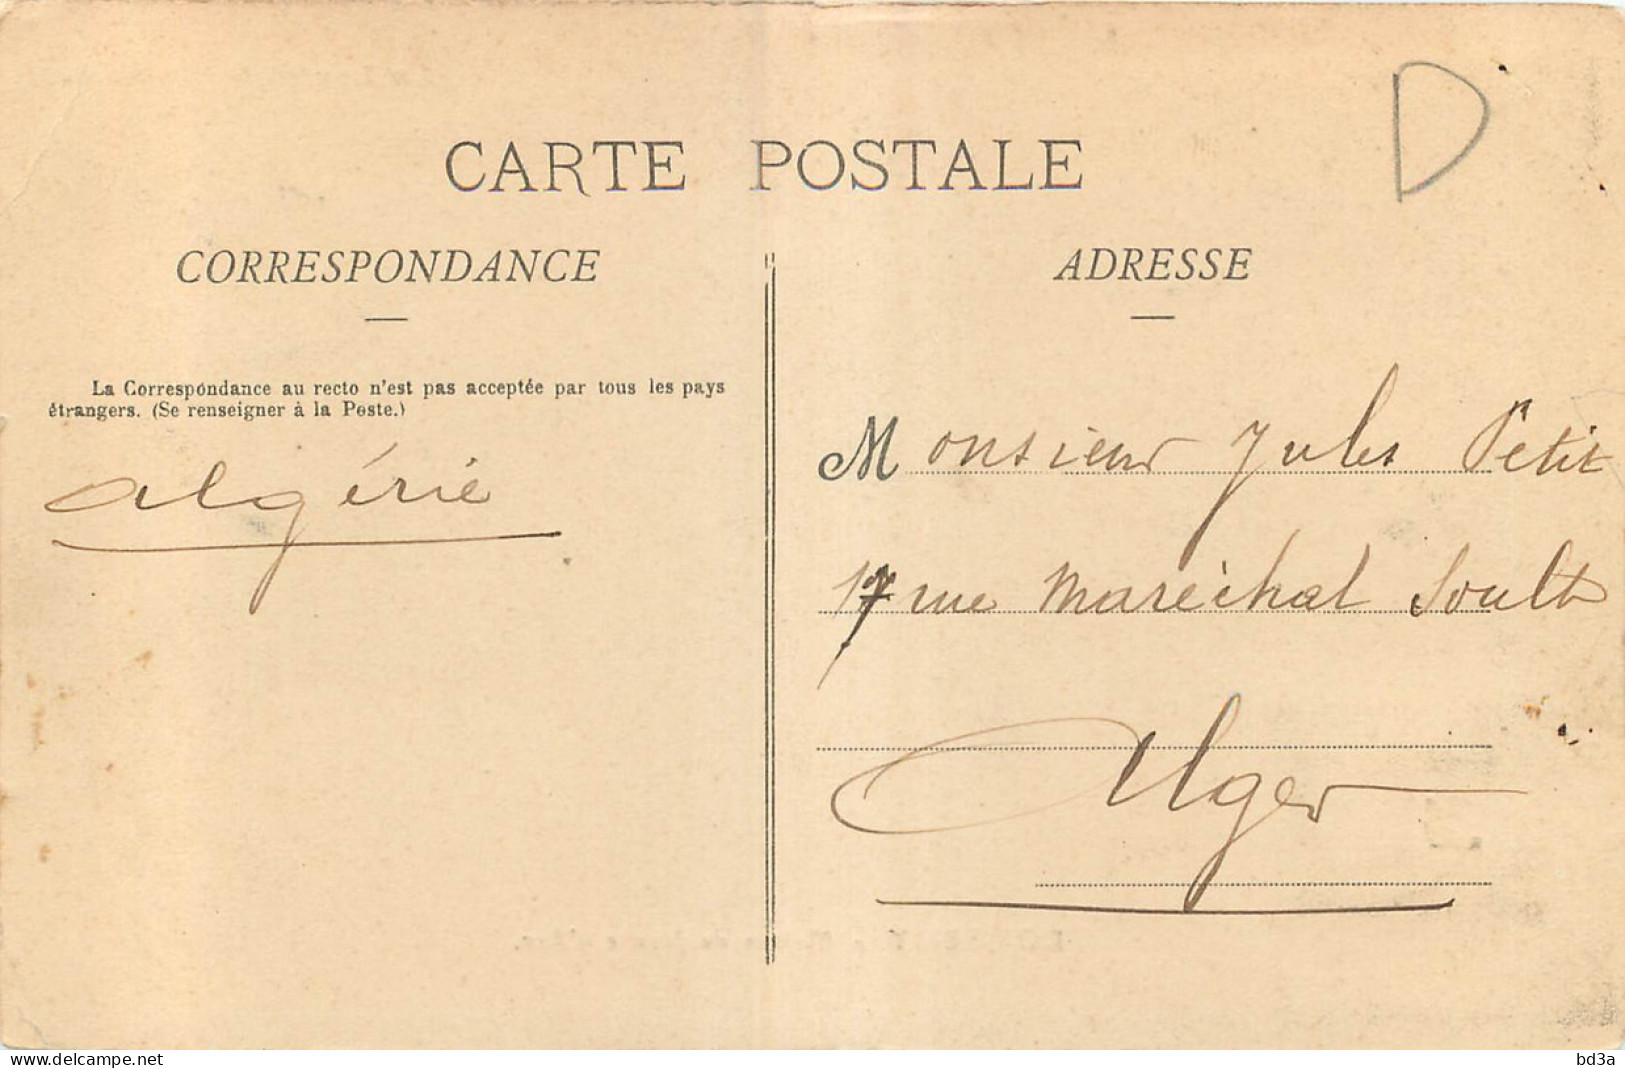 CARTE POSTALE
D
CORRESPONDANCE
ADRESSE
La Correspondance au recto n'est pas acceptée par tous les pays
étrangers. (Se renseigner à la Poste.)
Algérie
Monsieur Jules Petit
17 rue Maréchal Soult
Alger
www.delcampe.net
bd3a